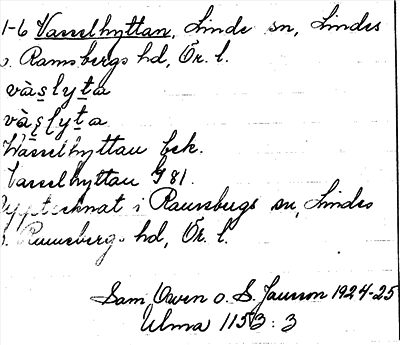 1-6 Vasselhyttan, Linde sn, Lindes
o. Ramsbergs hd, Ör. l.
vàs̱lyṯa
vàs̱lyṯa
Wasselhyttan Eck.
Vasselhyttan J 81.
Upptecknat i Ramsbergs sn, Lindes
o. Ramsbergs hd, Ör. l.
Sam Owen o. S. Jansson 1924-25
Ulma 1153:3